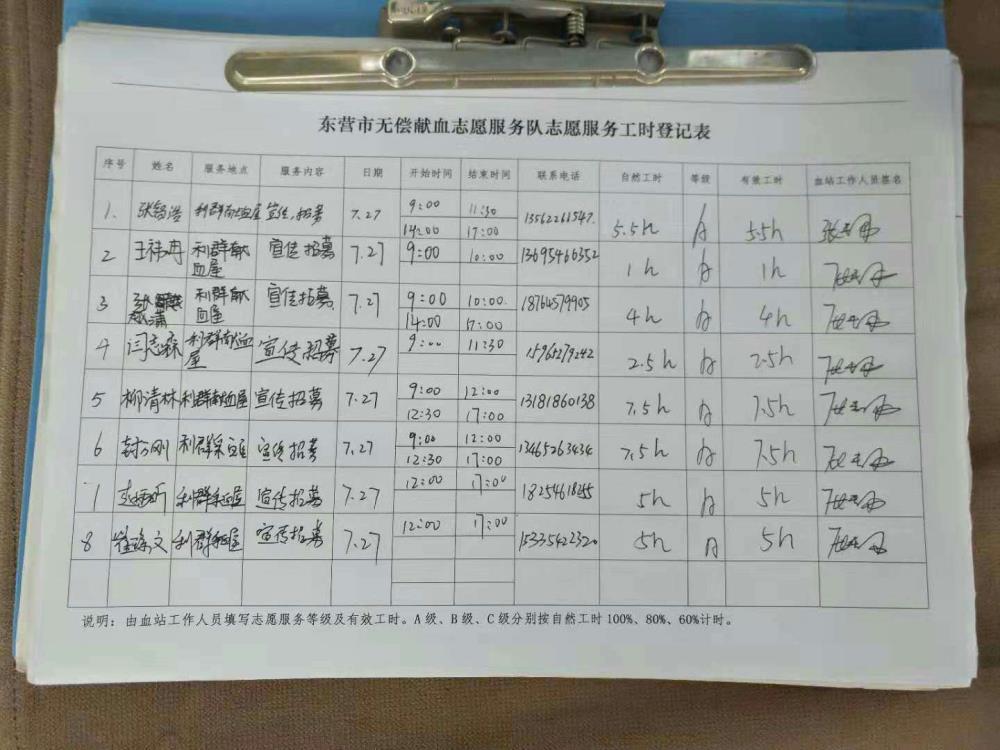 东营市无偿献血志愿服务队志愿服务工时登记表
序号 姓名 服务地点 服务内容 日期 开始时间 结束时间 联系电话 自然工时 等级 有效工时 血站工作人员签名
1. 利群献血屋 宣传,招募 7.27 9:00 11:30 13562261547. 5.5h A 5.5h
14:00 17:00
2 利群献血屋 宣传招募 7.27 9:00 10:00 13695466352 1h A 1h
3 利群献血屋 宣传招募 7.27 9:00 10:00. 18764579905 4h A 4h
14:00 17:00
4 闫志森 利群献血屋 宣传招募 7.27 9:00 11:30 15961279242 2.5h A 2.5h
5 柳清林 利群献血屋 宣传招募 7.27 9:00 12:00 13181860138 7.5h A 7.5h
12:30 17:00
6 宣传招募 7.27 9:00 12:00 13465263434 7.5h A 7.5h
12:30 17:00
7 宣传招募 7.27 12:00 17:00 18254618255 5h A 5h
8 宣传招募 7.27 12:00 17:00 15335422320 5h A 5h
说明：由血站工作人员填写志愿服务等级及有效工时。A级、B级、C级分别按自然工时100%、80%、60%计时。